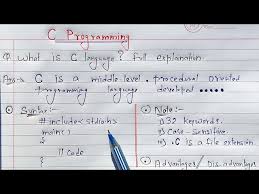 C Programming
Q. What is C language? Full explanation.
Ans→ C is a middle-level, procedural oriented
programming language developed .....
⊙ Syntax:
# include<stdio.h>
main()
{
// code
}
⊙ Note:-
i) 32 keywords.
ii) Case-sensitive.
iii) .C is a file extension
⊙ Advantages/Dis.advantages